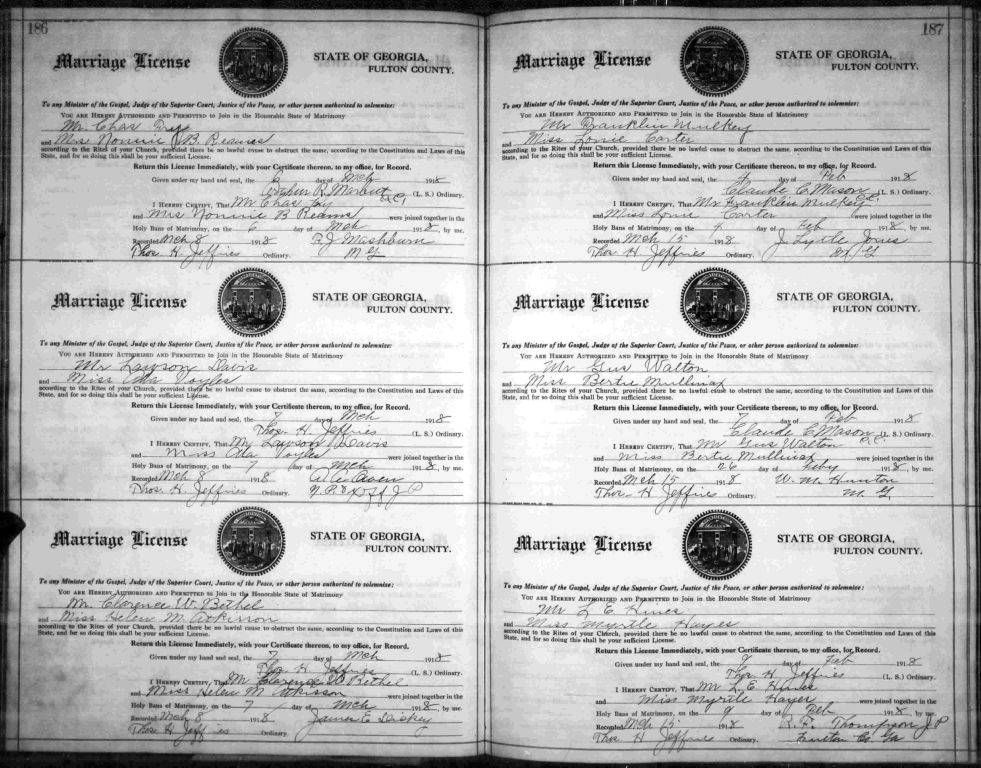 186
Marriage License
STATE OF GEORGIA,
FULTON COUNTY.
To any Minister of the Gospel, Judge of the Superior Court, Justice of the Peace, or other person authorized to solemnize:
YOU ARE HEREBY AUTHORIZED AND PERMITTED to Join in the Honorable State of Matrimony
Mr. Chas
and Mrs Nonnie B. Reams
according to the Rites of your Church, provided there be no lawful cause to obstruct the same, according to the Constitution and Laws of this
State, and for so doing this shall be your sufficient License.
Return this License Immediately, with your Certificate thereon, to my office, for Record.
Given under my hand and seal, the 6 day of Mch 1918
(L. S.) Ordinary.
I HEREBY CERTIFY, That Mr Chas
and Mrs Nonnie B Reams were joined together in the
Holy Bans of Matrimony, on the 6 day of Mch 1918, by me.
Recorded Mch 8 1918 P. J. Mashburn
Thos. H. Jeffries Ordinary. M G
Marriage License
STATE OF GEORGIA,
FULTON COUNTY.
To any Minister of the Gospel, Judge of the Superior Court, Justice of the Peace, or other person authorized to solemnize:
YOU ARE HEREBY AUTHORIZED AND PERMITTED to Join in the Honorable State of Matrimony
Mr Lawson Davis
and Miss Ola Voyles
according to the Rites of your Church, provided there be no lawful cause to obstruct the same, according to the Constitution and Laws of this
State, and for so doing this shall be your sufficient License.
Return this License Immediately, with your Certificate thereon, to my office, for Record.
Given under my hand and seal, the 7 day of Mch 1918
Thos. H. Jeffries (L. S.) Ordinary.
I HEREBY CERTIFY, That Mr Lawson Davis
and Miss Ola Voyles were joined together in the
Holy Bans of Matrimony, on the 7 day of Mch 1918, by me.
Recorded Mch 8 1918
Thos. H. Jeffries Ordinary. J P
Marriage License
STATE OF GEORGIA,
FULTON COUNTY.
To any Minister of the Gospel, Judge of the Superior Court, Justice of the Peace, or other person authorized to solemnize:
YOU ARE HEREBY AUTHORIZED AND PERMITTED to Join in the Honorable State of Matrimony
Mr. Clarence W. Bethel
and Miss Helen M. Atkisson
according to the Rites of your Church, provided there be no lawful cause to obstruct the same, according to the Constitution and Laws of this
State, and for so doing this shall be your sufficient License.
Return this License Immediately, with your Certificate thereon, to my office, for Record.
Given under my hand and seal, the 7 day of Mch 1918
Thos H. Jeffries (L. S.) Ordinary.
I HEREBY CERTIFY, That Mr Clarence W Bethel
and Miss Helen M Atkisson were joined together in the
Holy Bans of Matrimony, on the 7 day of Mch 1918, by me.
Recorded Mch 8 1918 James E. Dickey
Thos H Jeffries Ordinary.
187
Marriage License
STATE OF GEORGIA,
FULTON COUNTY.
To any Minister of the Gospel, Judge of the Superior Court, Justice of the Peace, or other person authorized to solemnize:
YOU ARE HEREBY AUTHORIZED AND PERMITTED to Join in the Honorable State of Matrimony
Mr Franklin Mulkey
and Miss Lonie Carter
according to the Rites of your Church, provided there be no lawful cause to obstruct the same, according to the Constitution and Laws of this
State, and for so doing this shall be your sufficient License.
Return this License Immediately, with your Certificate thereon, to my office, for Record.
Given under my hand and seal, the day of Feb 1918
Claude C. Mason (L. S.) Ordinary.
I HEREBY CERTIFY, That Mr Franklin Mulkey
and Miss Lonie Carter were joined together in the
Holy Bans of Matrimony, on the day of Feb 1918, by me.
Recorded Mch 15 1918 J Lytle Jones
Thos H Jeffries Ordinary.
Marriage License
STATE OF GEORGIA,
FULTON COUNTY.
To any Minister of the Gospel, Judge of the Superior Court, Justice of the Peace, or other person authorized to solemnize:
YOU ARE HEREBY AUTHORIZED AND PERMITTED to Join in the Honorable State of Matrimony
Mr Gus Walton
and Miss Bertie Mullinax
according to the Rites of your Church, provided there be no lawful cause to obstruct the same, according to the Constitution and Laws of this
State, and for so doing this shall be your sufficient License.
Return this License Immediately, with your Certificate thereon, to my office, for Record.
Given under my hand and seal, the 7 day of Feb 1918
Claude C. Mason (L. S.) Ordinary.
I HEREBY CERTIFY, That Mr Gus Walton
and Miss Bertie Mullinax were joined together in the
Holy Bans of Matrimony, on the 26 day of Feby 1918, by me.
Recorded Mch 15 1918 W. M. Hunton
Thos. H Jeffries Ordinary. M. G.
Marriage License
STATE OF GEORGIA,
FULTON COUNTY.
To any Minister of the Gospel, Judge of the Superior Court, Justice of the Peace, or other person authorized to solemnize:
YOU ARE HEREBY AUTHORIZED AND PERMITTED to Join in the Honorable State of Matrimony
Mr L. E. Hines
and Miss Myrtle Hayes
according to the Rites of your Church, provided there be no lawful cause to obstruct the same, according to the Constitution and Laws of this
State, and for so doing this shall be your sufficient License.
Return this License Immediately, with your Certificate thereon, to my office, for Record.
Given under my hand and seal, the 9 day of Feb 1918
Thos H Jeffries (L. S.) Ordinary.
I HEREBY CERTIFY, That Mr L. E Hines
and Miss Myrtle Hayes were joined together in the
Holy Bans of Matrimony, on the 9 day of Feb 1918, by me.
Recorded Mch 15 1918 R. F. Thompson J P
Thos H Jeffries Ordinary. Fulton Co Ga